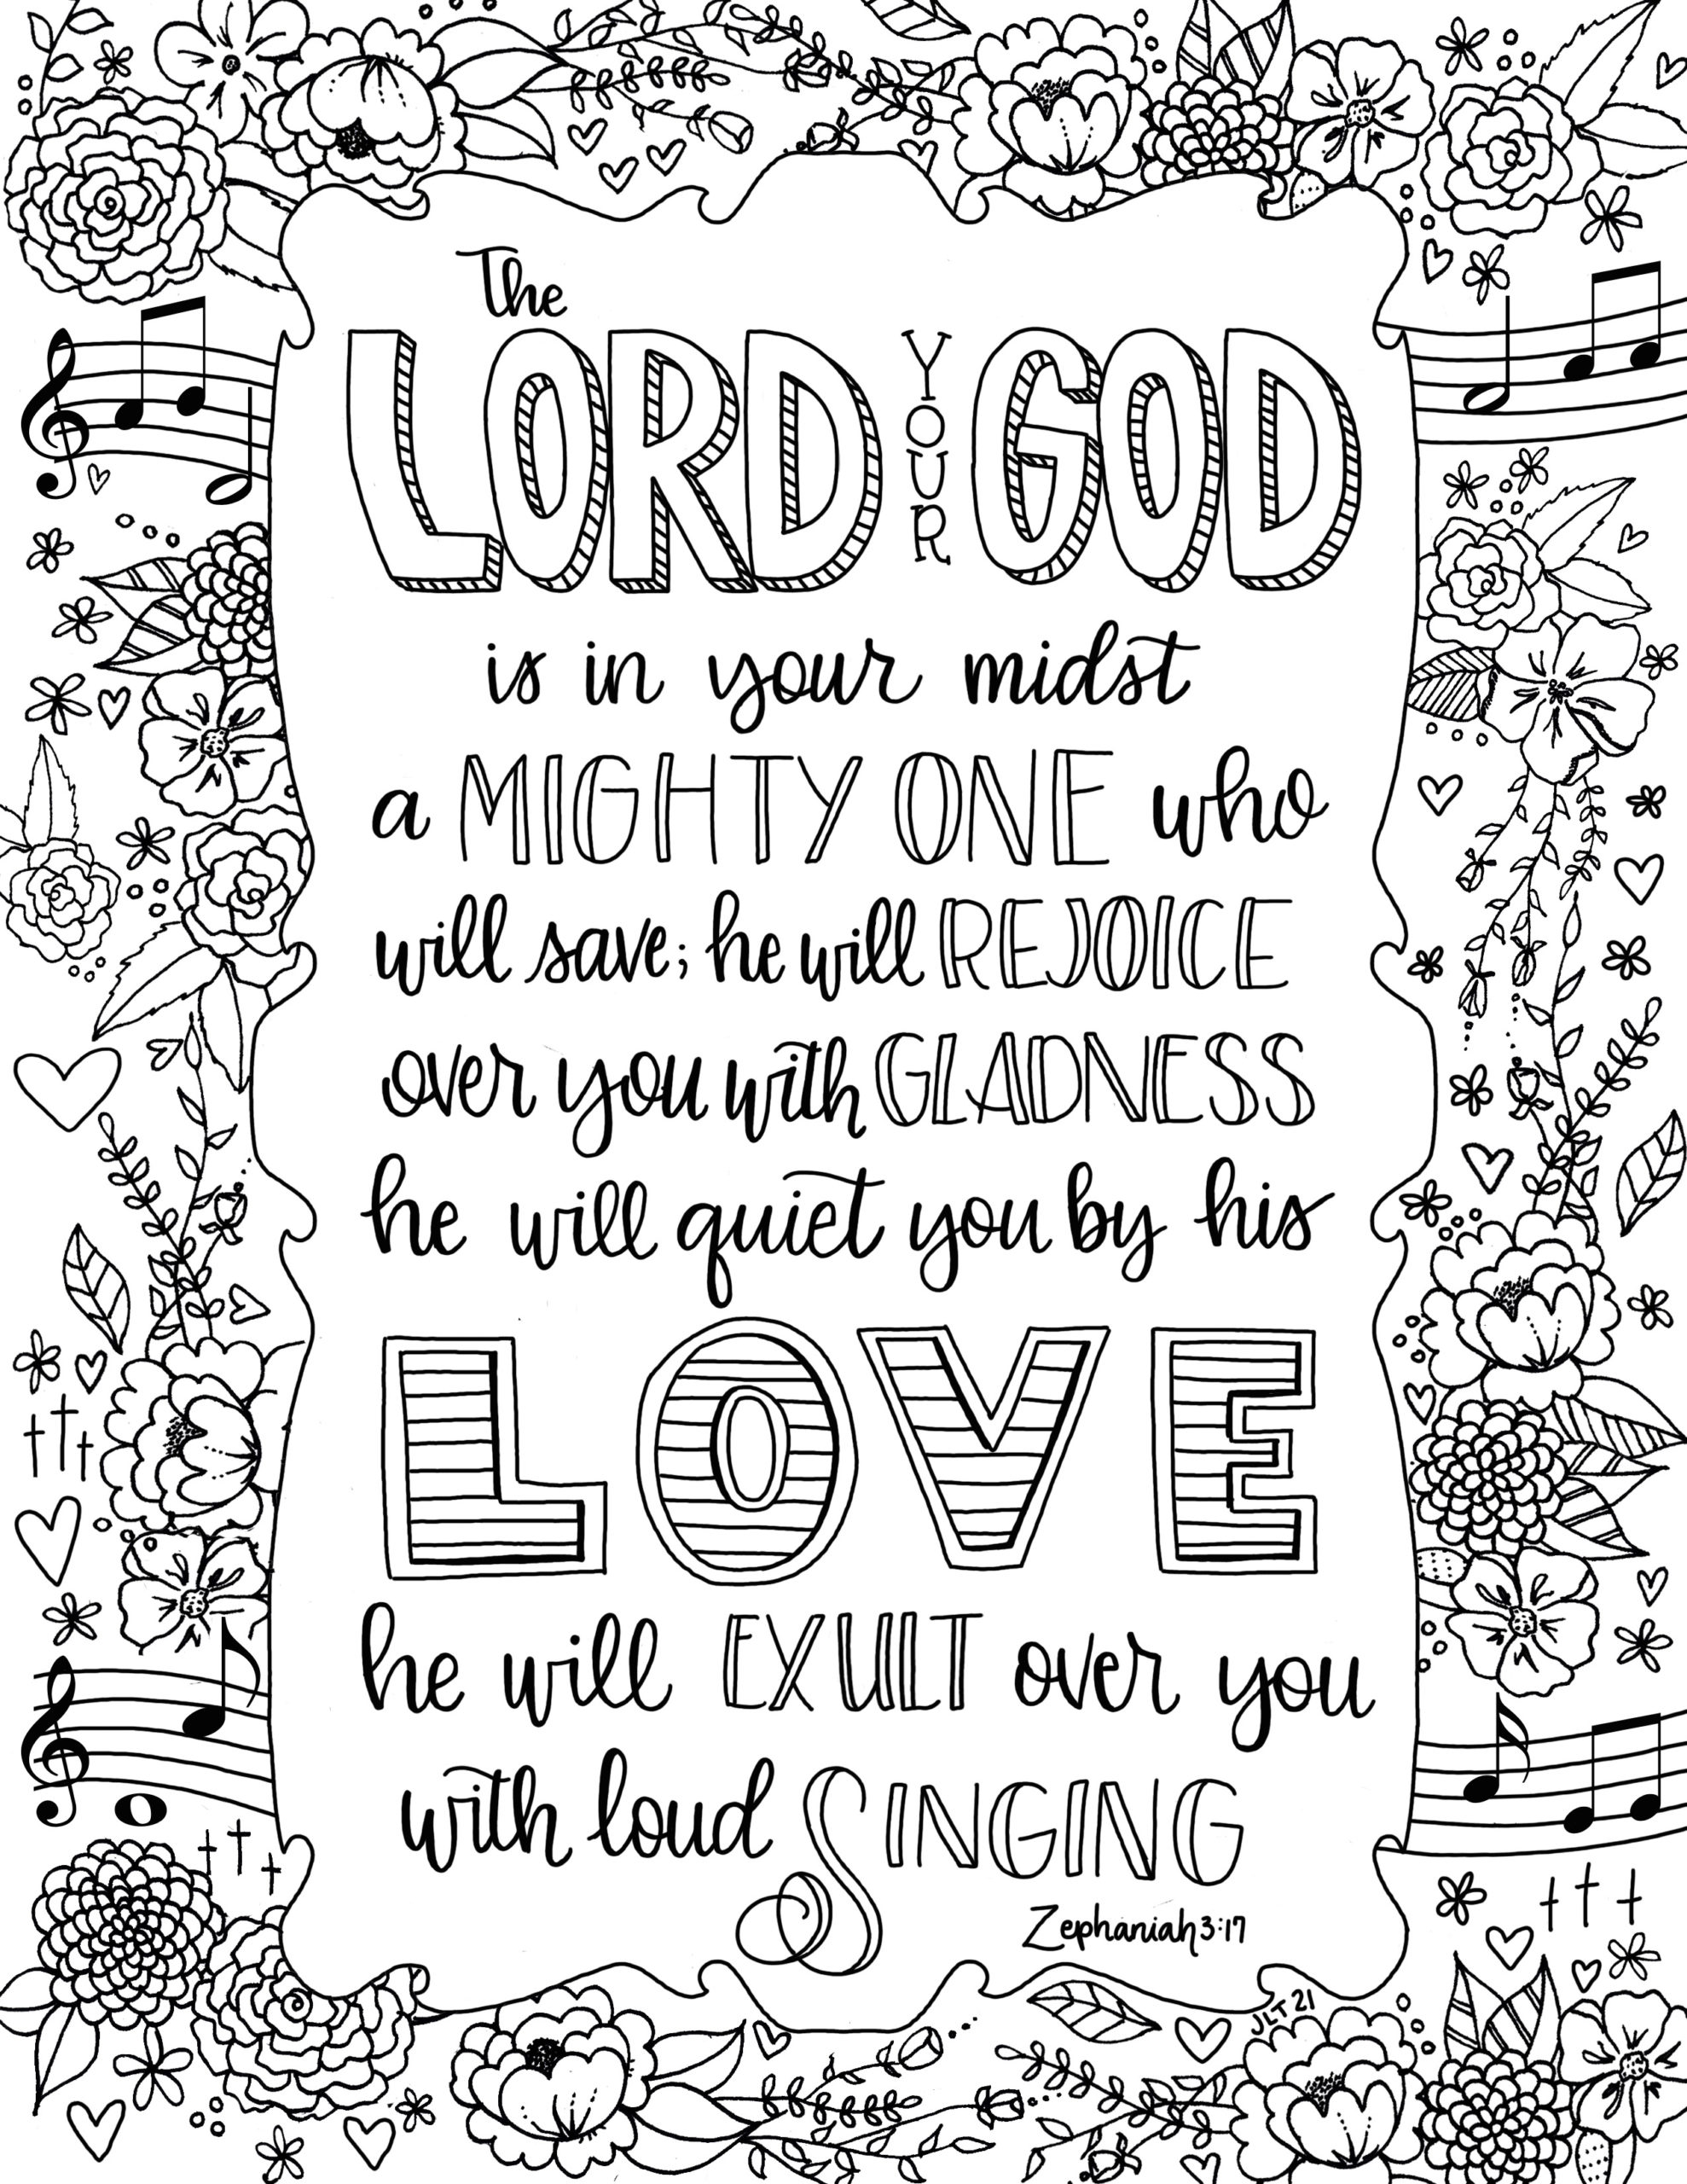 The
LORD YOUR GOD
is in your midst
a MIGHTY ONE who
will save; he will REJOICE
over you with GLADNESS
he will quiet you by his
LOVE
he will EXULT over you
with loud SINGING
Zephaniah 3:17
JLT 21